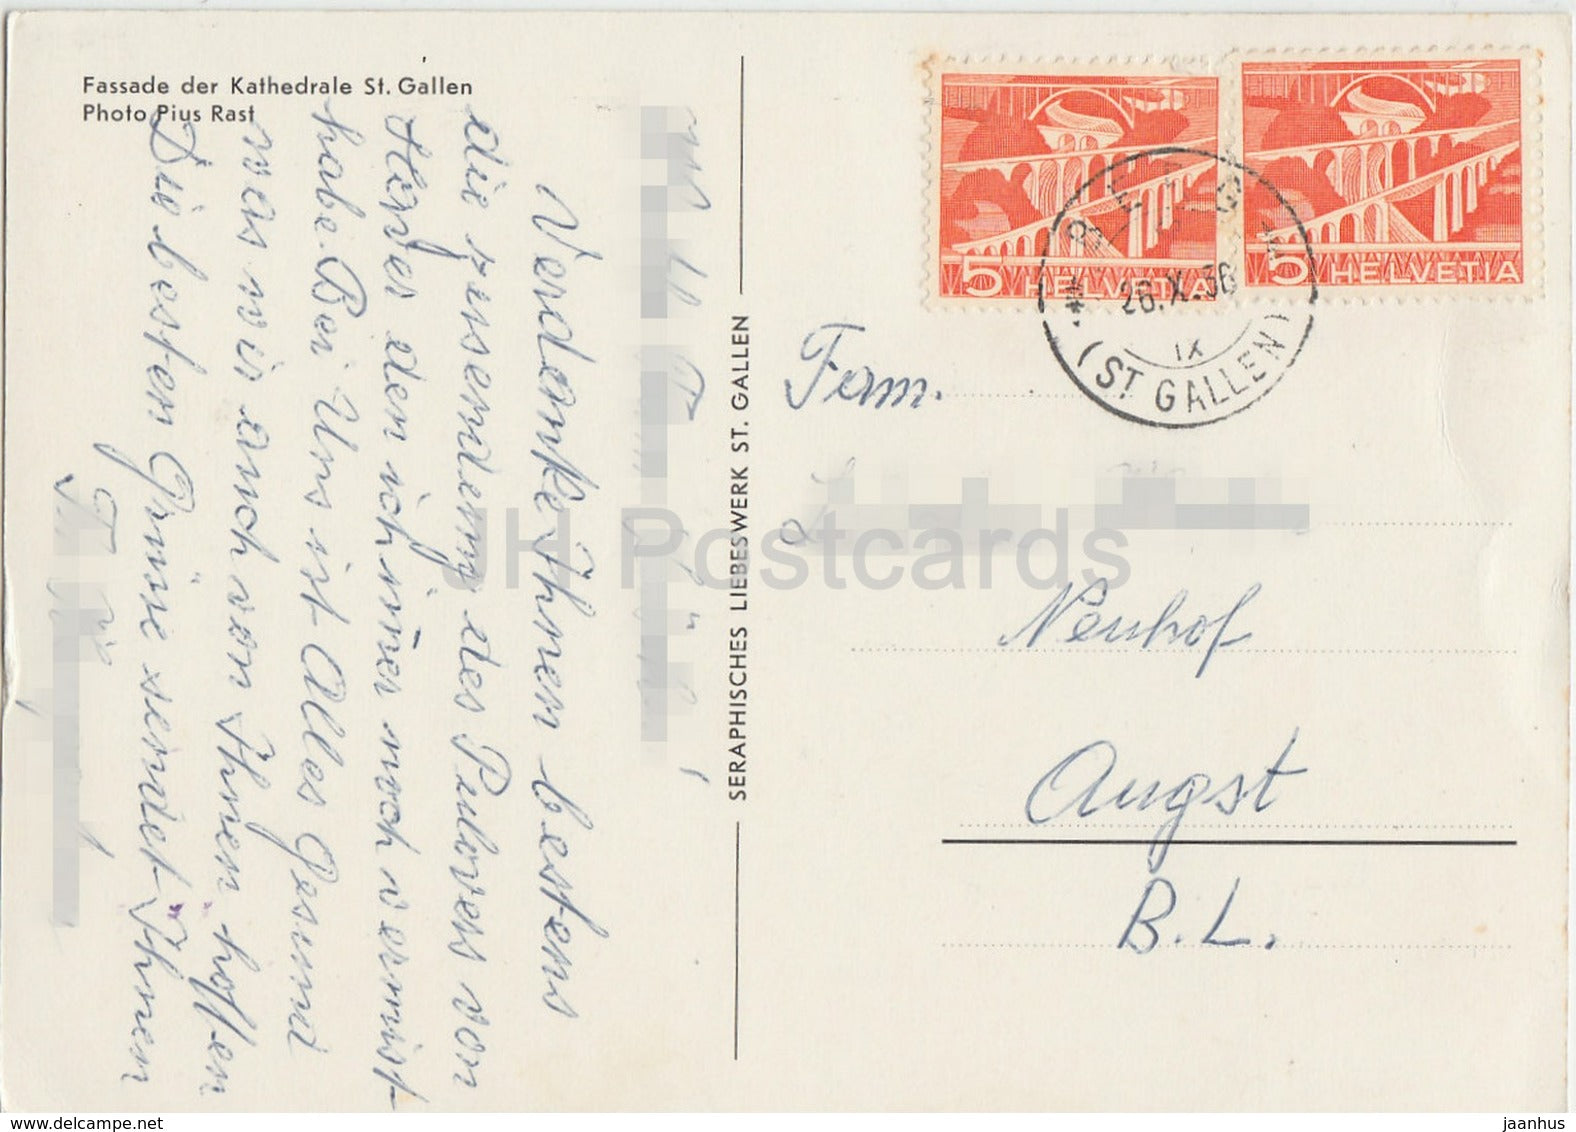 Fassade der Kathedrale St. Gallen
Photo Pius Rast
Verdanke Ihnen bestens
die zusendung des Pulvers von
Herves den ich imer noch vermist
habe. Bei Uns ist Alles Gesund
was wir auch von Ihnen hoffen
Die besten Grüsse sendet Ihnen
SERAPHISCHES LIEBESWERK ST. GALLEN
5 HELVETIA
5 HELVETIA
BERG
26.X.56
IX
(ST. GALLEN)
Fam.
Neuhof
Augst
B.L.
JH Postcards
jaanhus